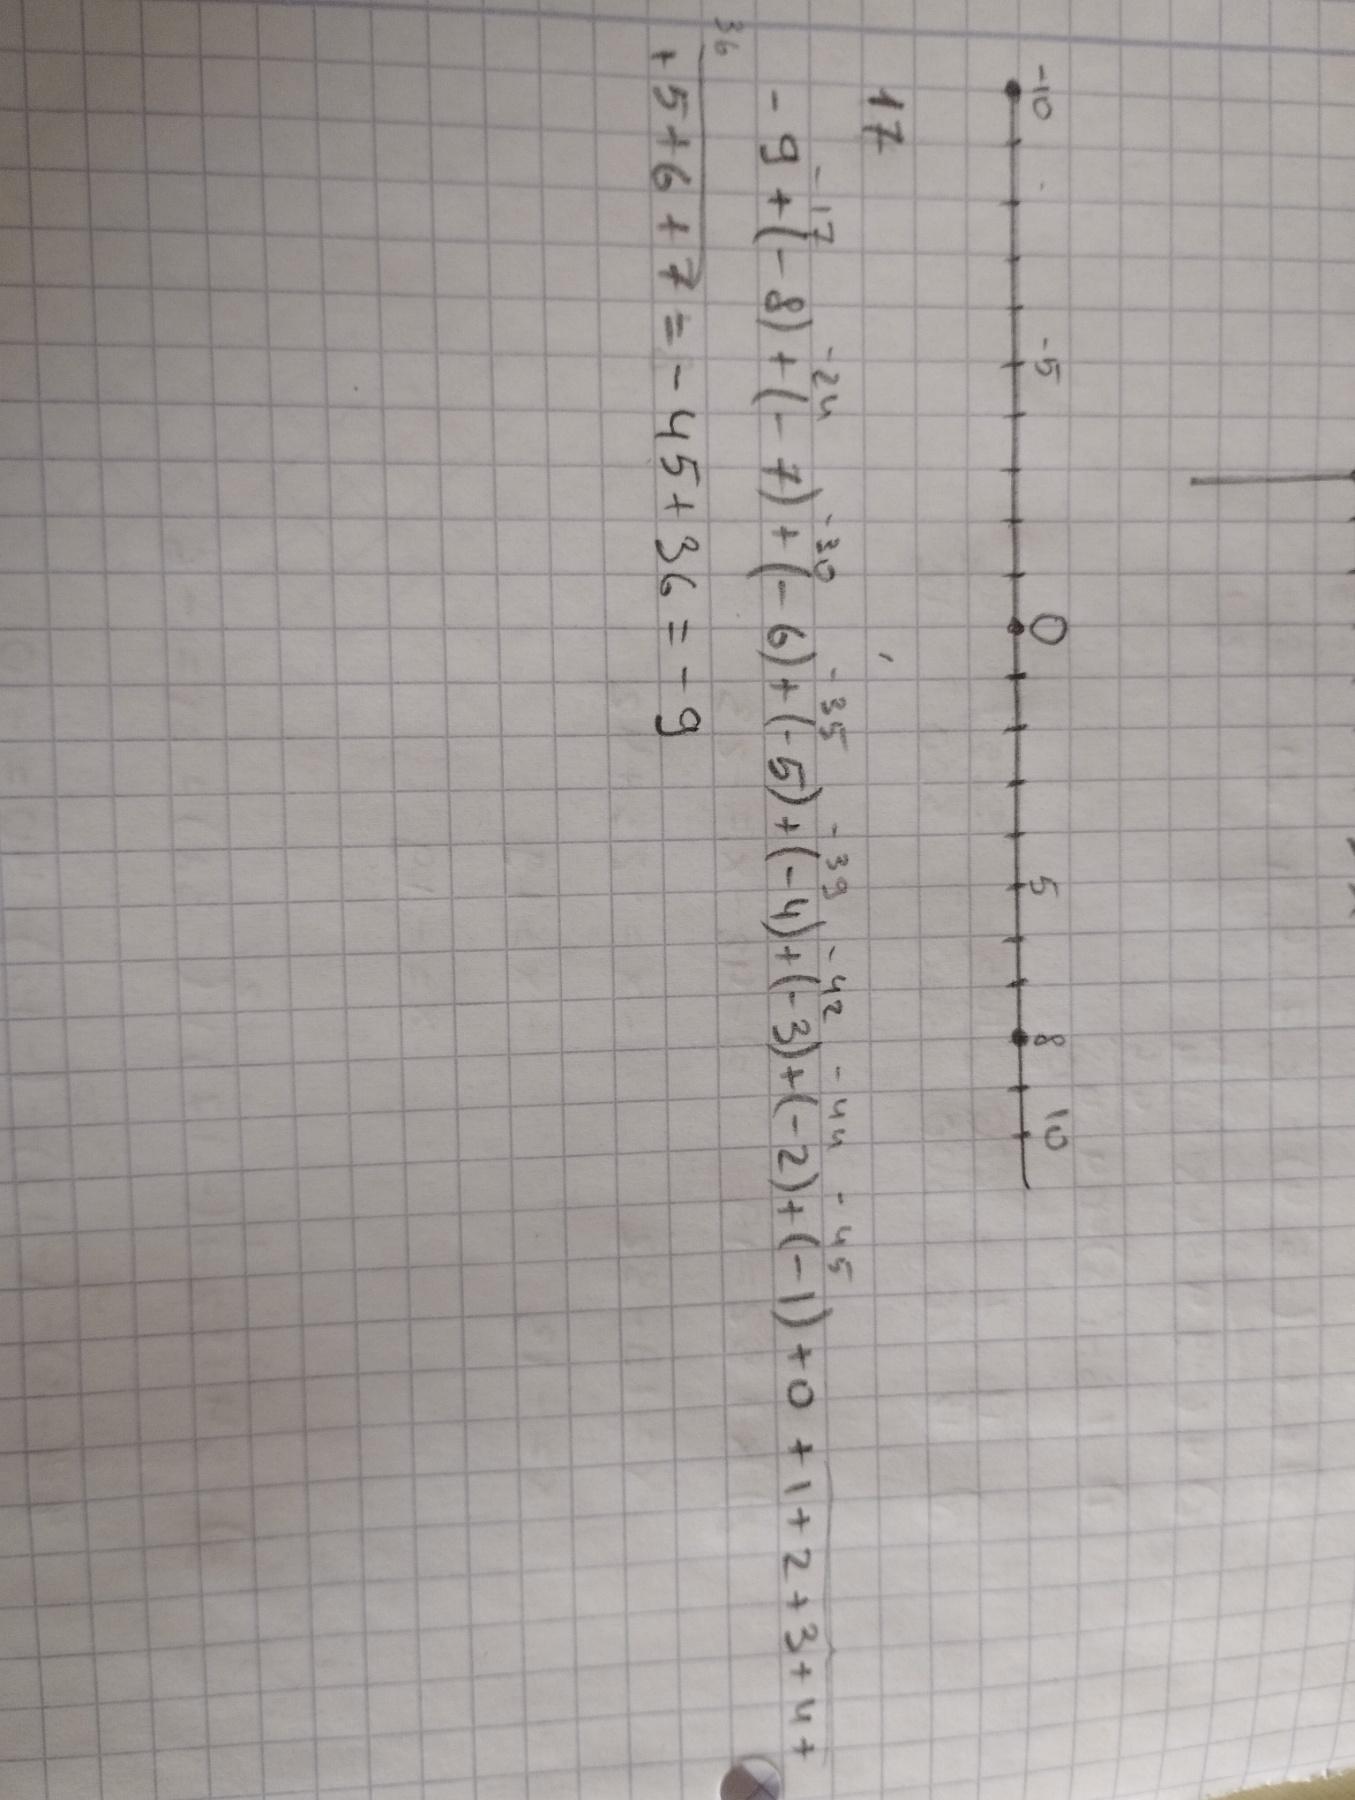 -10 -5 0 5 8 10
17
-17 -24 -30 -35 -39 -42 -44 -45
-9+(-8)+(-7)+(-6)+(-5)+(-4)+(-3)+(-2)+(-1)+0+1+2+3+4+
36
+5+6+7=-45+36=-9